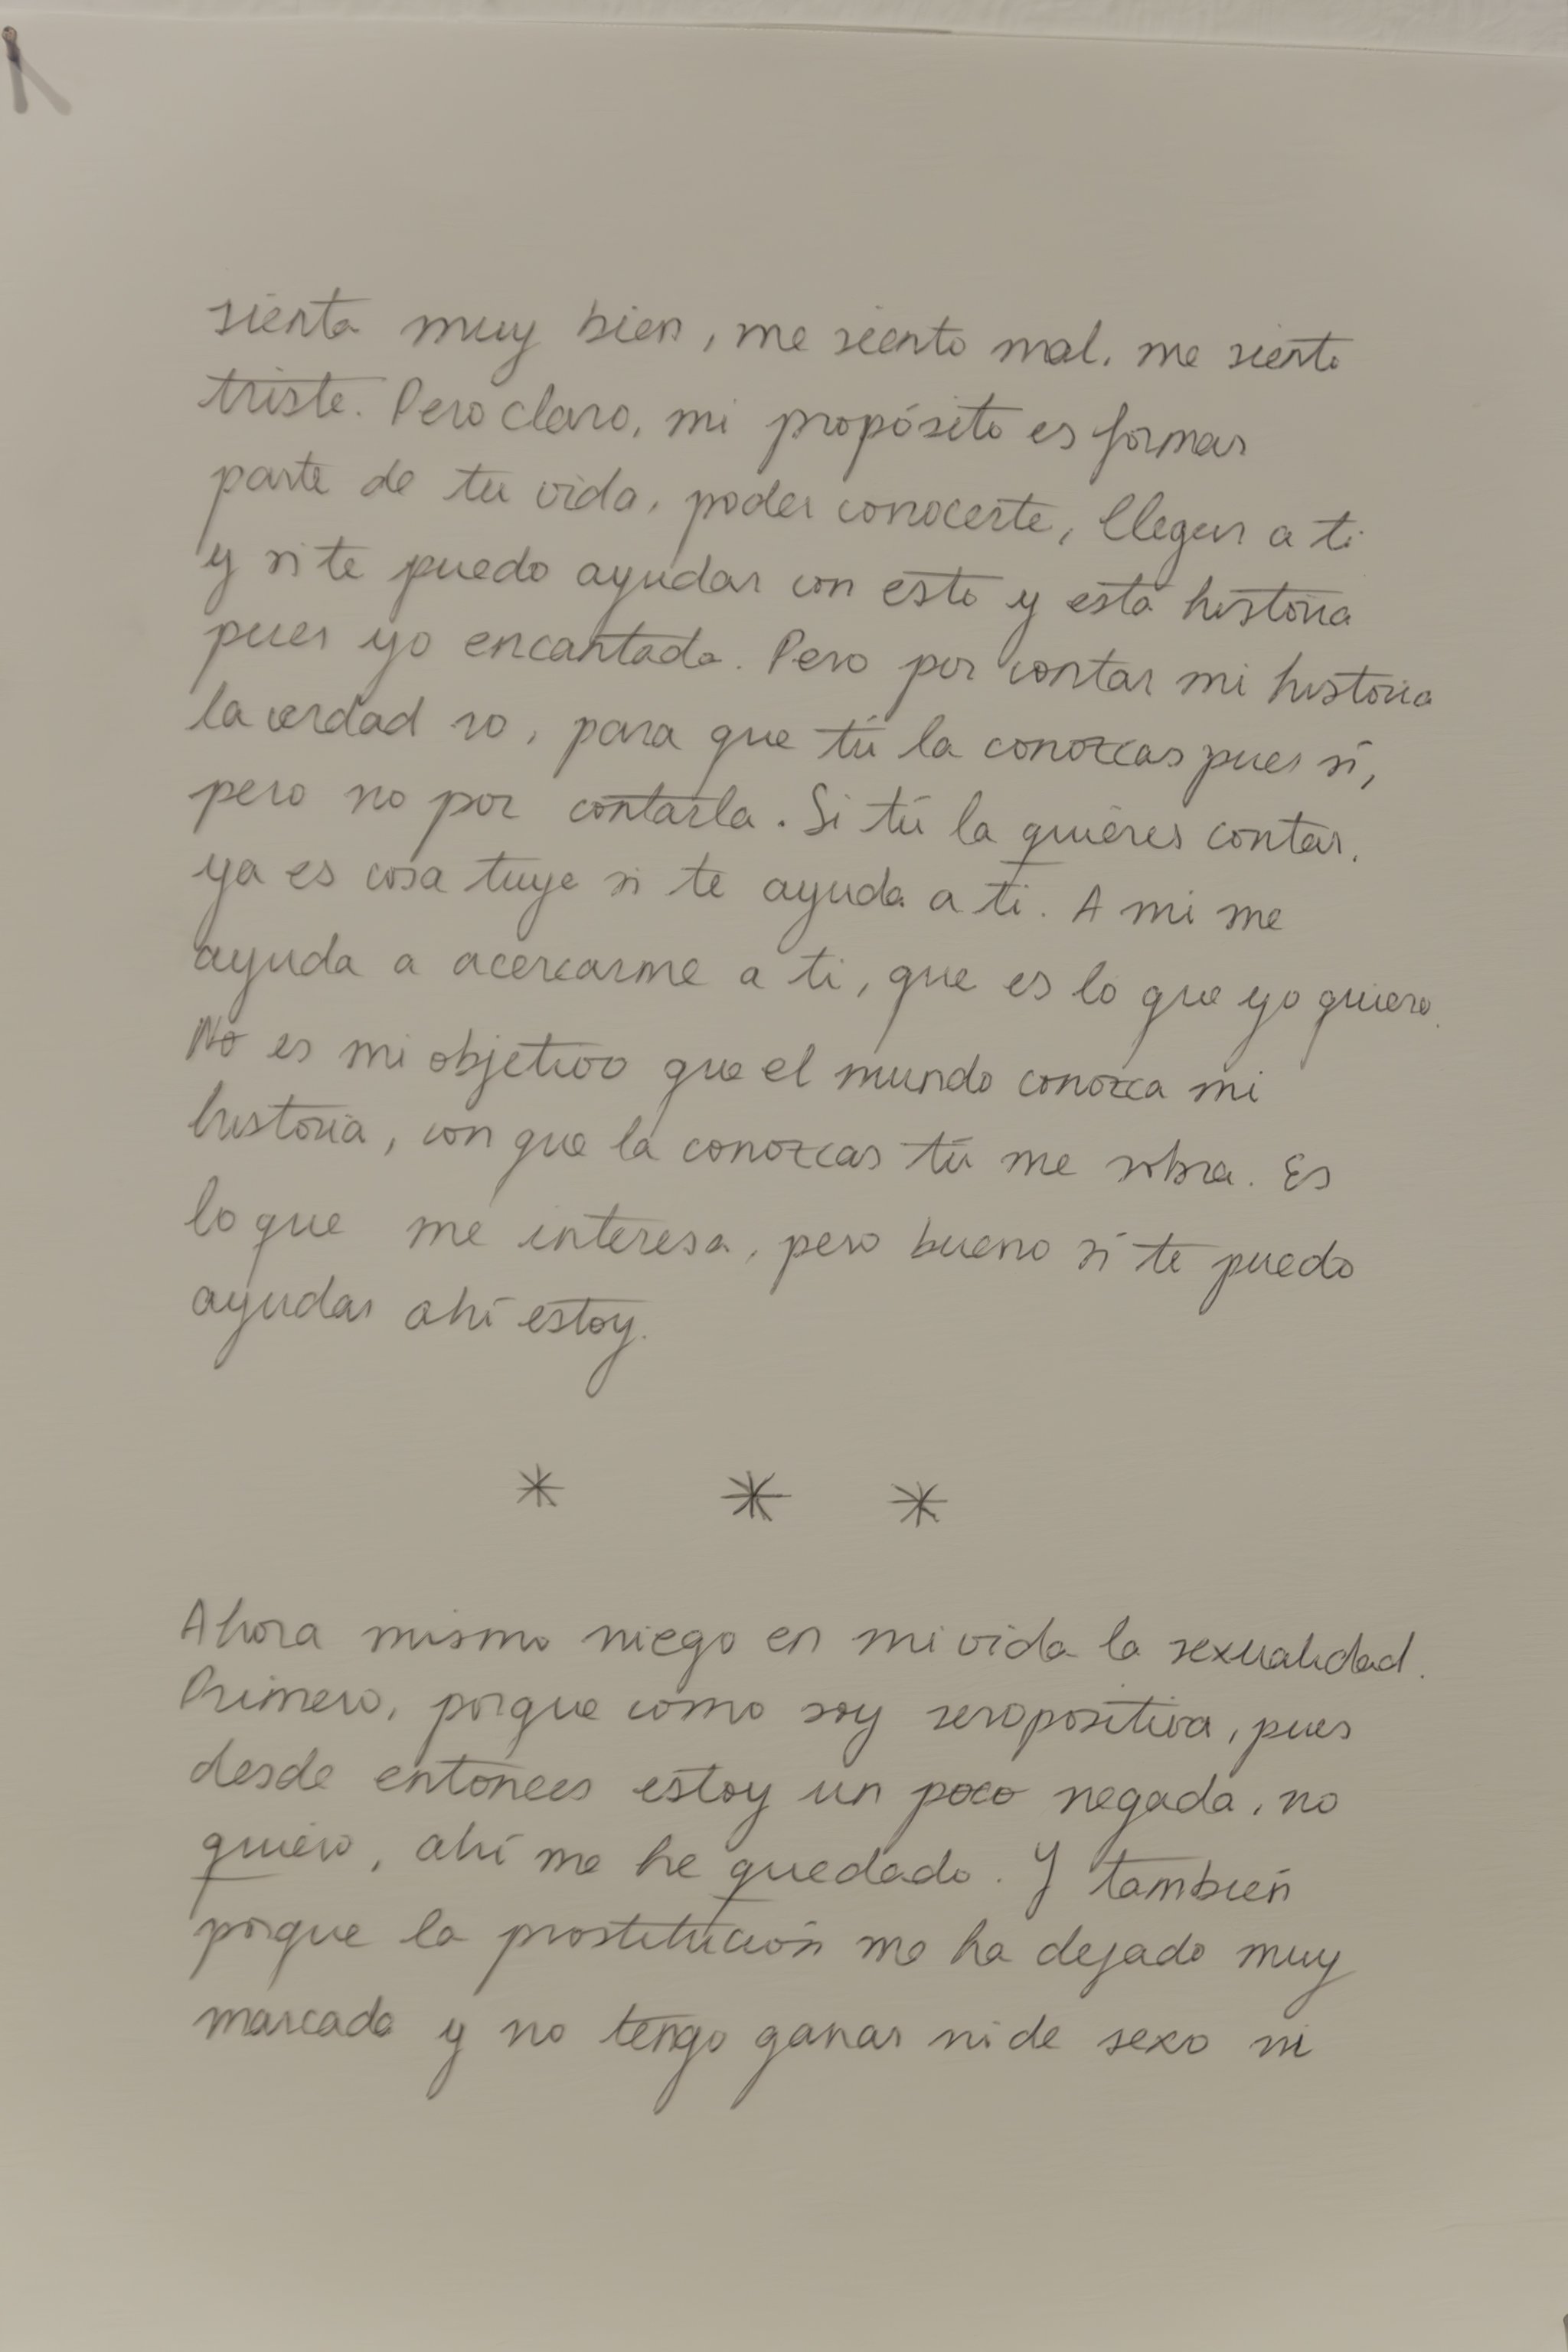 sienta muy bien, me siento mal, me siento
triste. Pero claro, mi propósito es formar
parte de tu vida, poder conocerte, llegar a ti
y si te puedo ayudar con esto y esta historia
pues yo encantada. Pero por contar mi historia
la verdad no, para que tú la conozcas pues sí,
pero no por contarla. Si tú la quieres contar,
ya es cosa tuya si te ayuda a ti. A mi me
ayuda a acercarme a ti, que es lo que yo quiero.
No es mi objetivo que el mundo conozca mi
historia, con que la conozcas tú me sobra. Es
lo que me interesa, pero bueno sí te puedo
ayudar ahí estoy.
* * *
Ahora mismo niego en mi vida la sexualidad.
Primero, porque como soy seropositiva, pues
desde entonces estoy un poco negada, no
quiero, ahí me he quedado. Y también
porque la prostitución me ha dejado muy
marcada y no tengo ganas ni de sexo ni